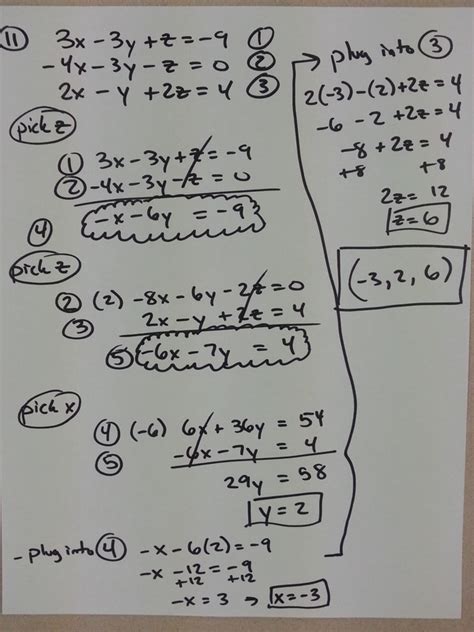 11 3x - 3y + z = -9 ①
-4x - 3y - z = 0 ②
2x - y + 2z = 4 ③
pick z
① 3x - 3y + z = -9
② -4x - 3y - z = 0
④ -x - 6y = -9
pick z
② (2) -8x - 6y - 2z = 0
③ 2x - y + 2z = 4
⑤ -6x - 7y = 4
pick x
④ (-6) 6x + 36y = 54
⑤ -6x - 7y = 4
29y = 58
y = 2
- plug into ④ -x - 6(2) = -9
-x - 12 = -9
+12 +12
-x = 3 → x = -3
→ plug into ③
2(-3) - (2) + 2z = 4
-6 - 2 + 2z = 4
-8 + 2z = 4
+8 +8
2z = 12
z = 6
(-3, 2, 6)